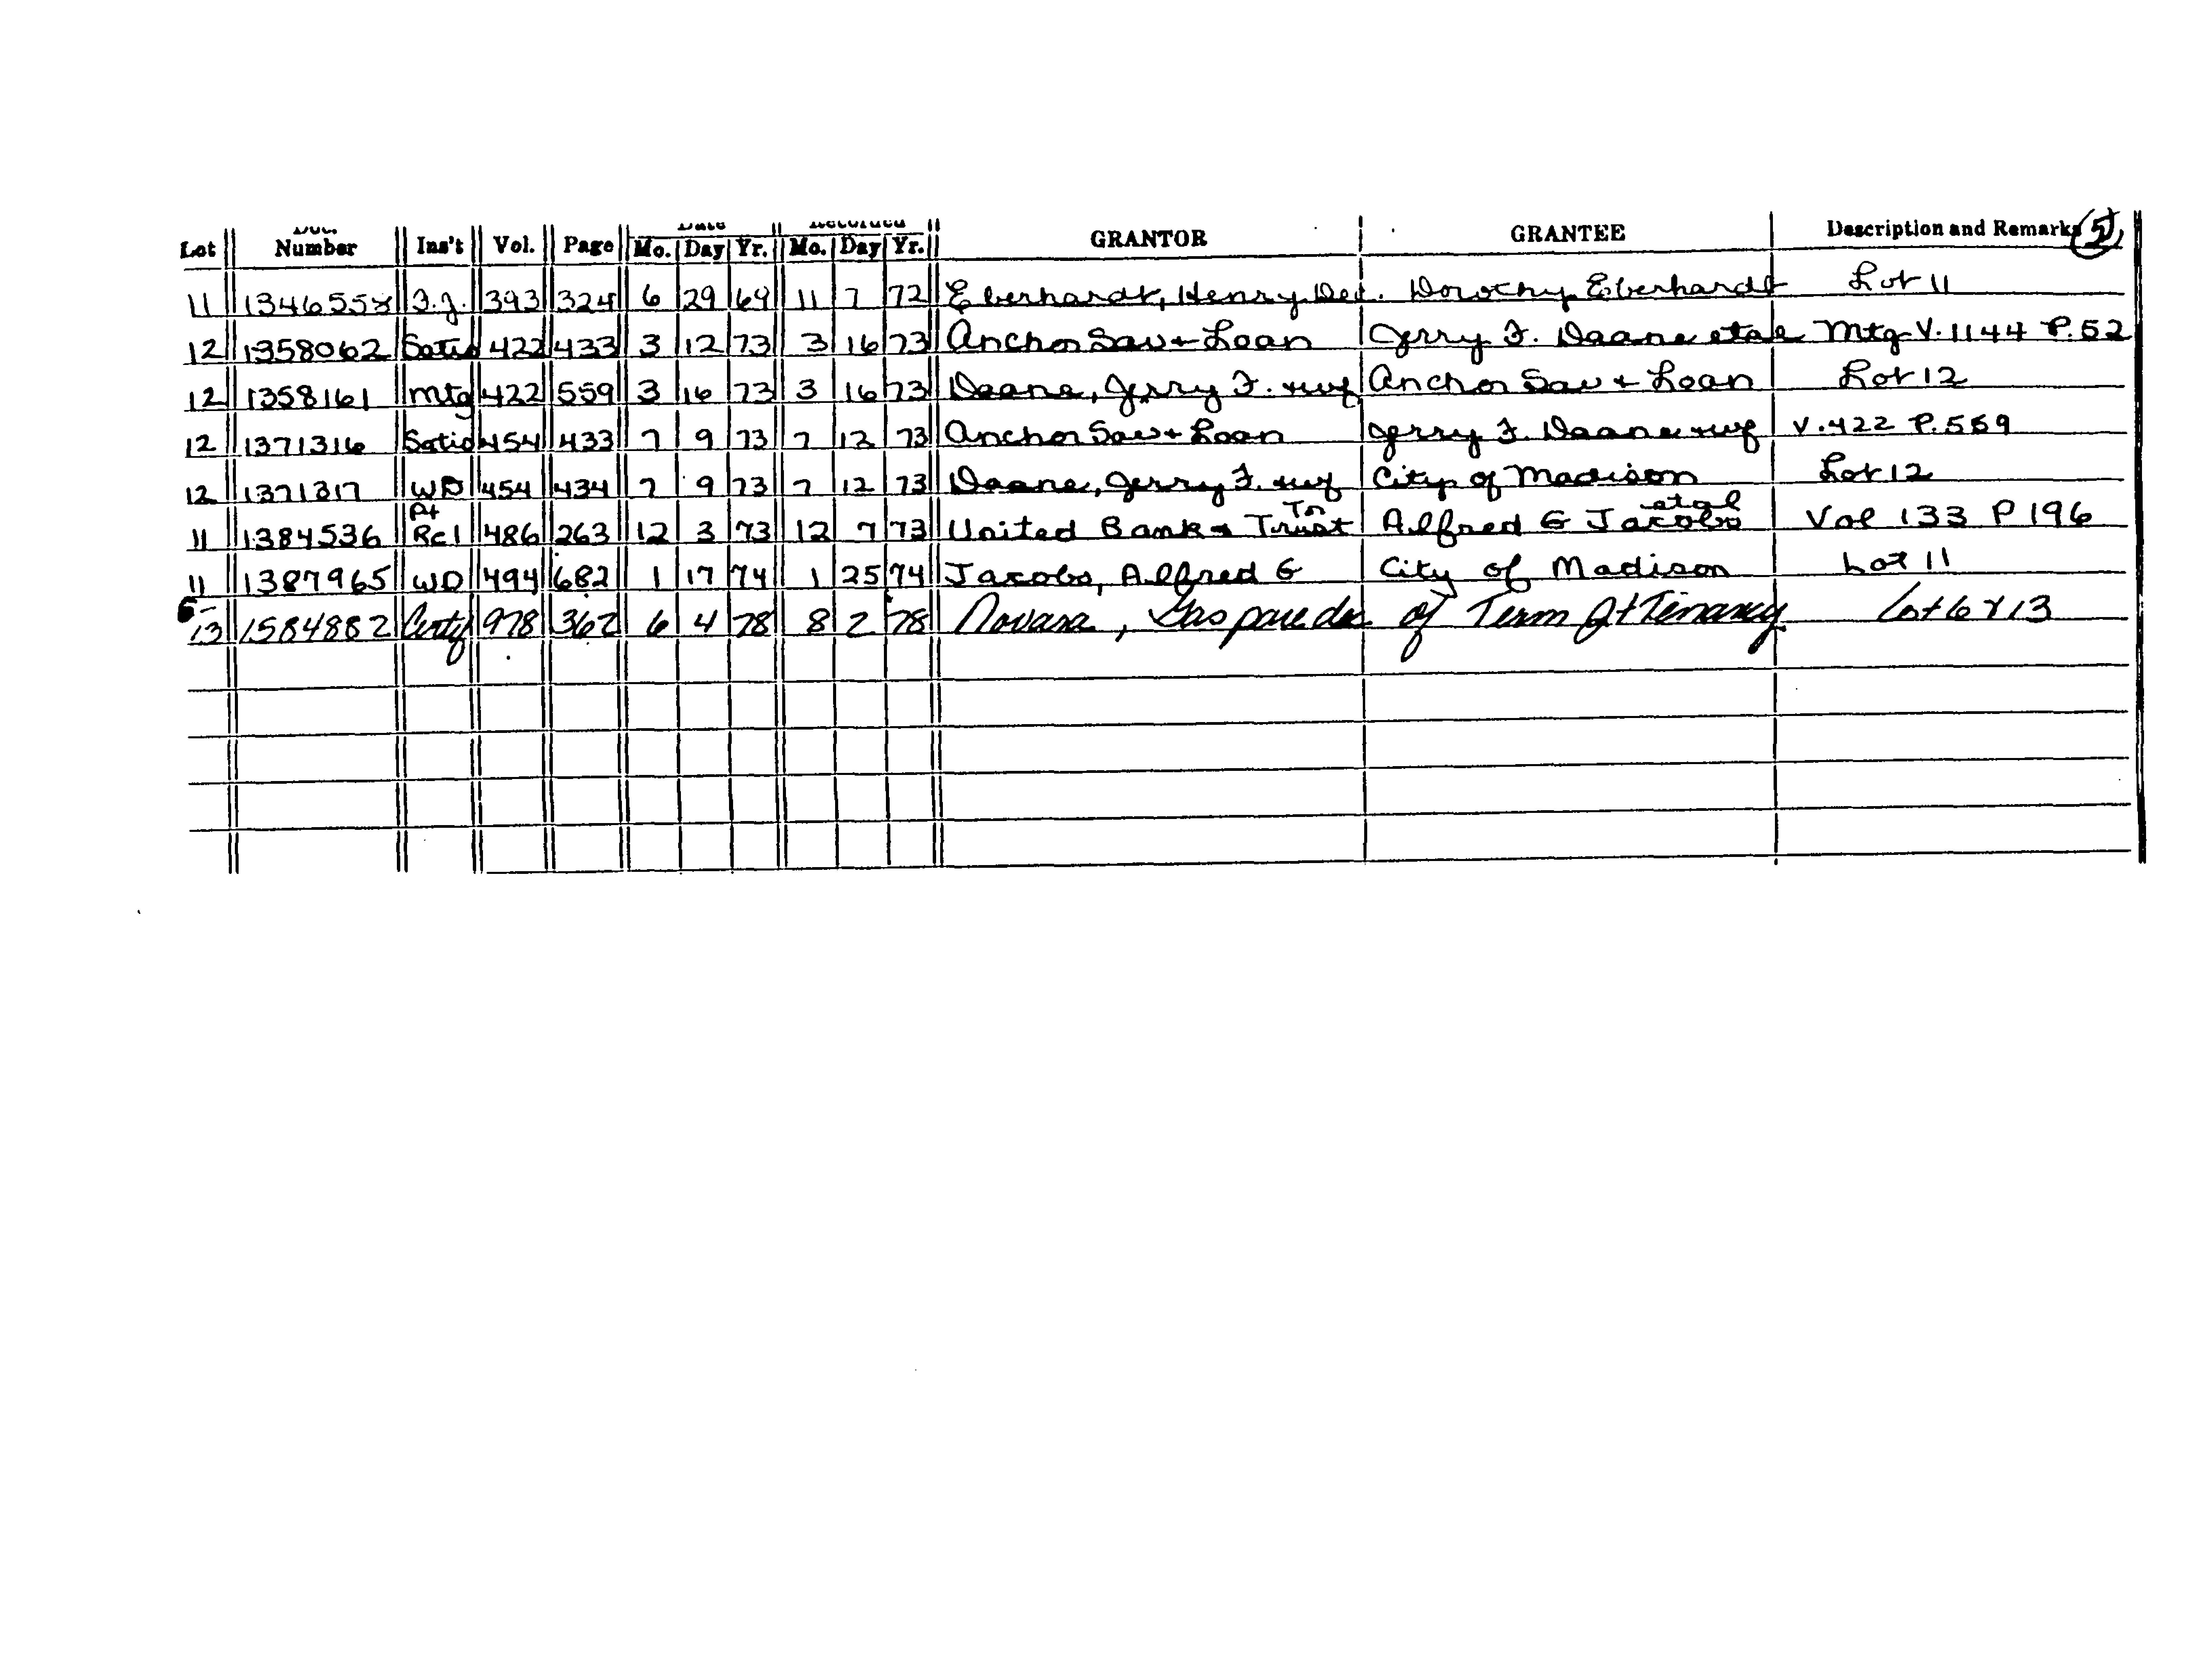 Doc. Date Recorded
Lot Number Ins't Vol. Page Mo. Day Yr. Mo. Day Yr. GRANTOR GRANTEE Description and Remarks 5
11 1346558 F.J. 393 324 6 29 69 11 7 72 Eberhardt, Henry Dec. Dorothy Eberhardt Lot 11
12 1358062 Satis 422 433 3 12 73 3 16 73 Anchor Sav + Loan Jerry F. Daane etal Mtg V. 1144 P. 52
12 1358161 Mtg 422 559 3 16 73 3 16 73 Daane, Jerry F. + wf Anchor Sav + Loan Lot 12
12 1371316 Satis 454 433 7 9 73 7 12 73 Anchor Sav + Loan Jerry F. Daane + wf V. 422 P. 559
12 1371317 WD 454 434 7 9 73 7 12 73 Daane, Jerry F. + wf City of Madison Lot 12
11 1384536 Pt Rel 486 263 12 3 73 12 7 73 United Bank + Trust Tr Alfred G Jacobs etal Vol 133 P 196
11 1387965 WD 494 682 1 17 74 1 25 74 Jacobs, Alfred G City of Madison Lot 11
6-13 1584882 Certif 978 362 6 4 78 8 2 78 Novara, Gaspare dec of Term Jt Tenancy Lot 6 & 13